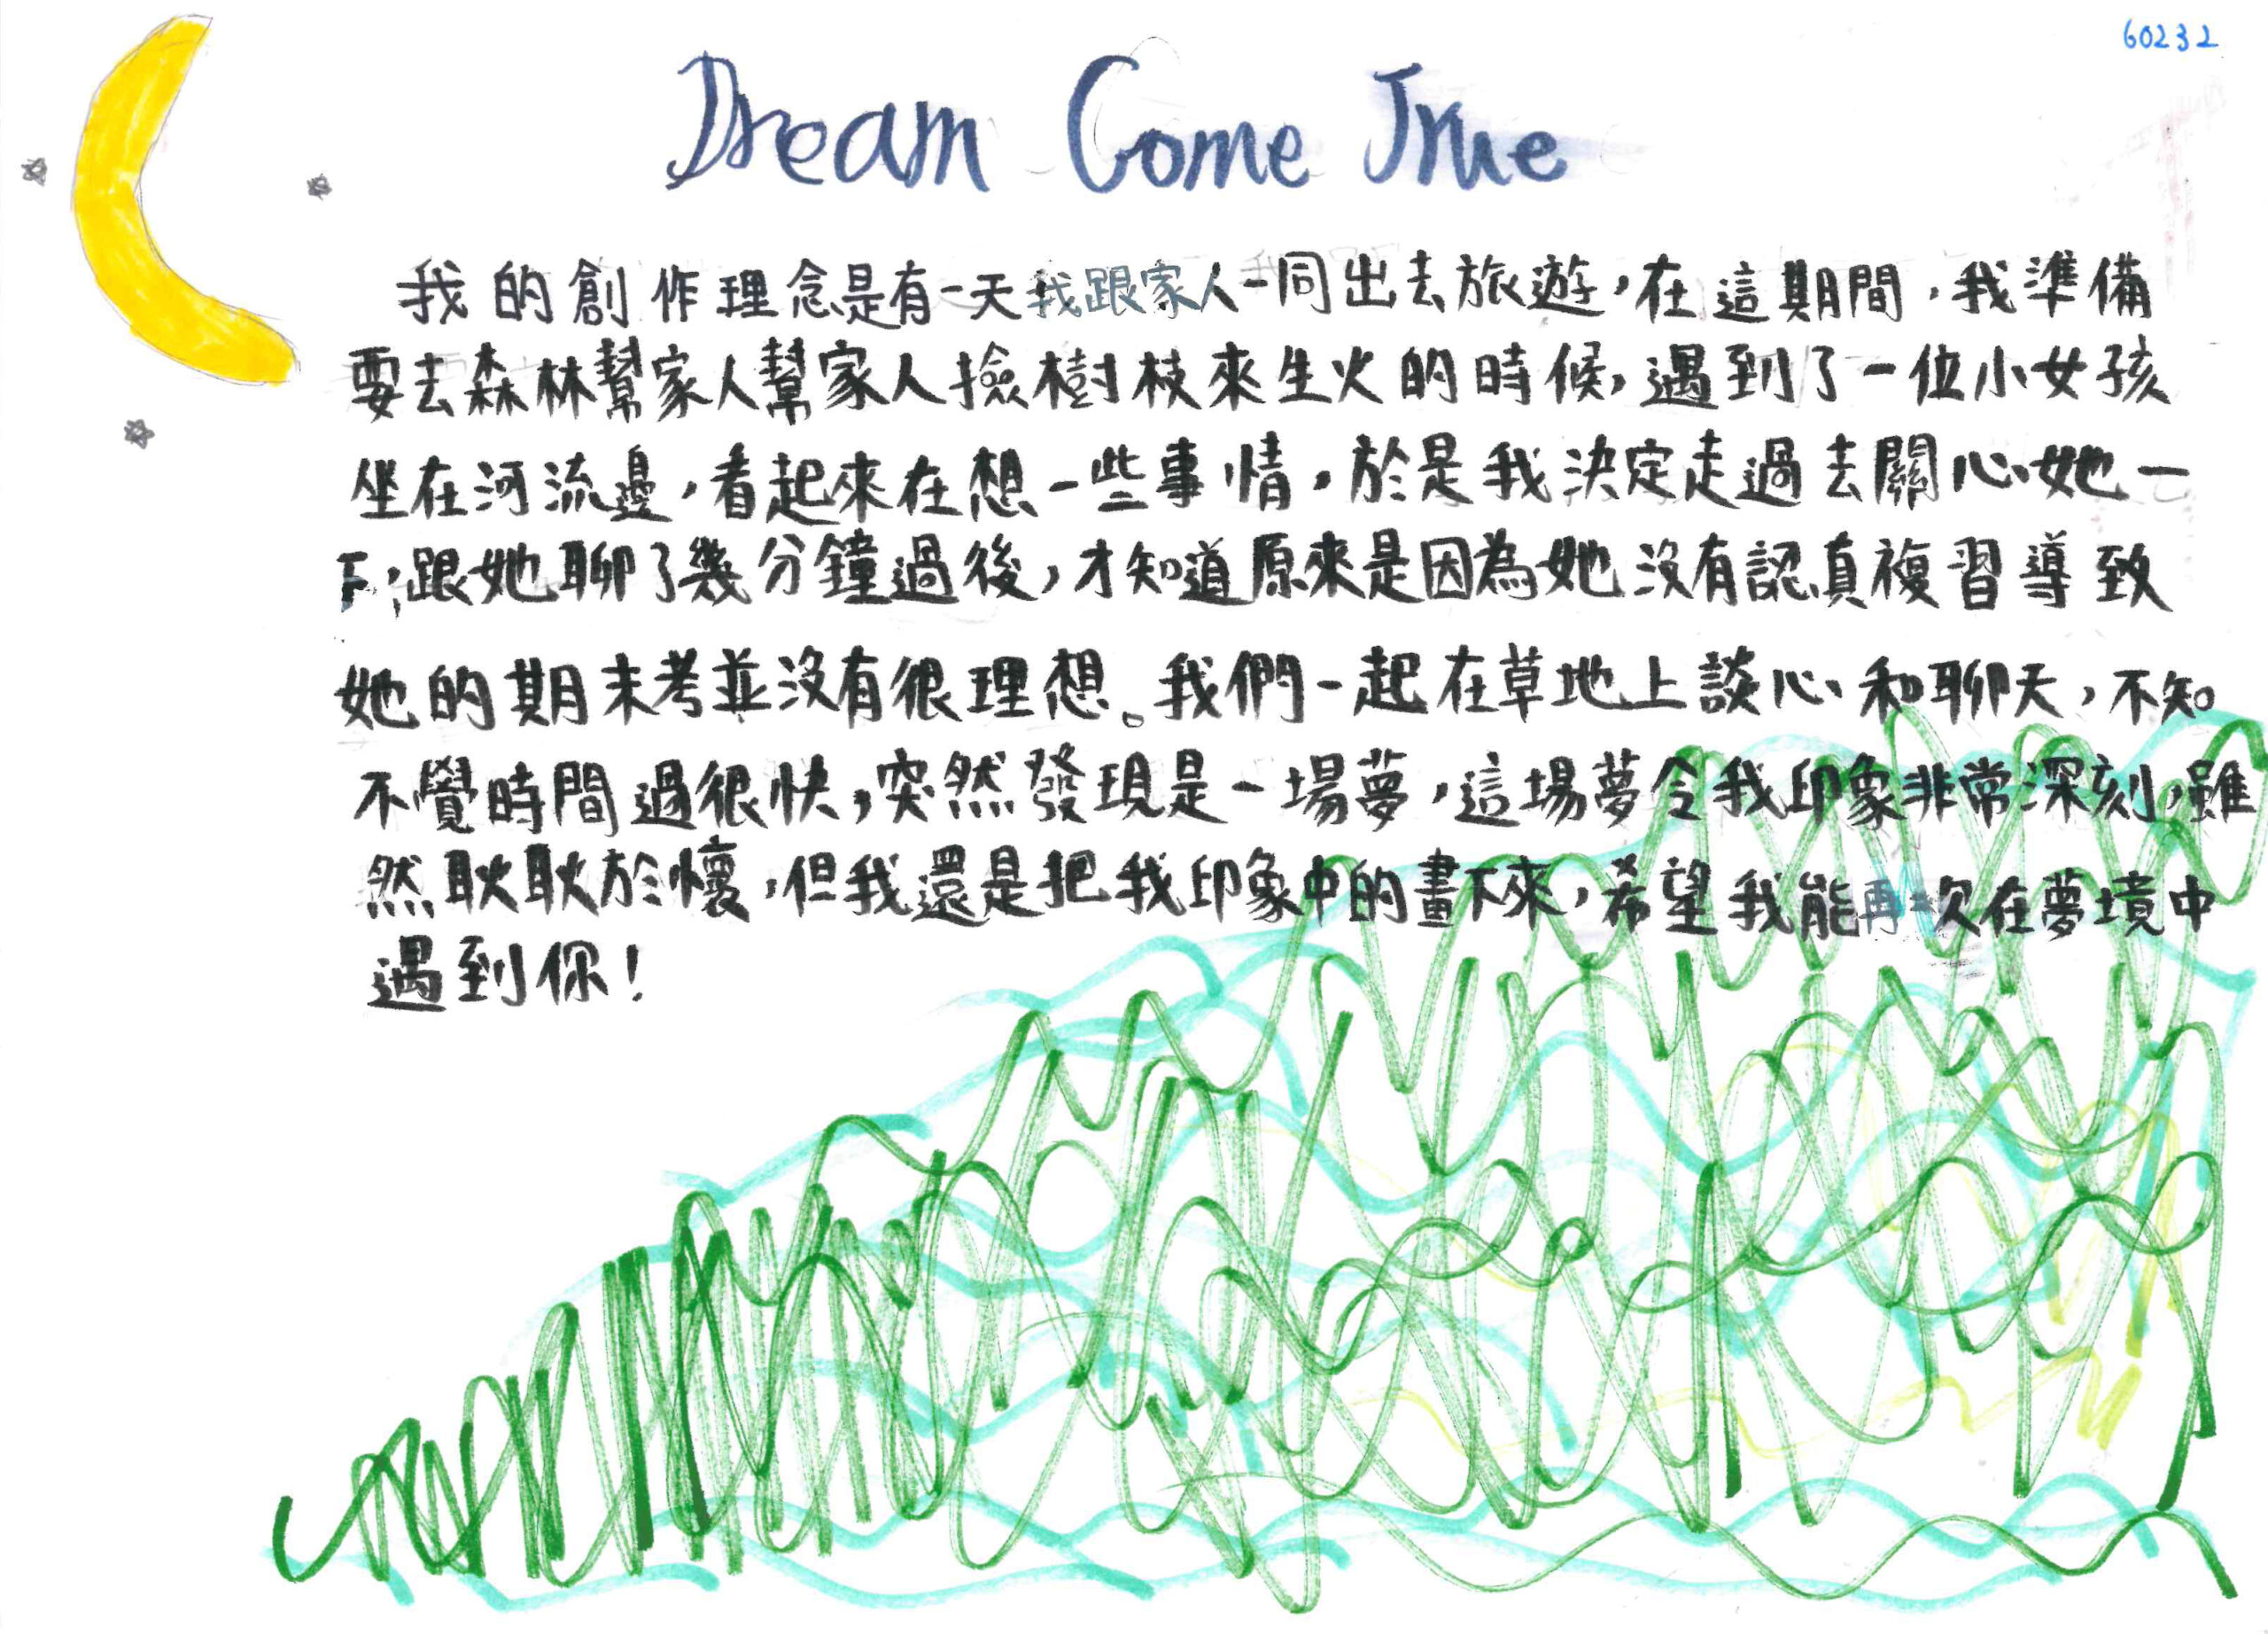 60232
Dream Come True
我的創作理念是有一天我跟家人一同出去旅遊,在這期間,我準備
要去森林幫家人幫家人撿樹枝來生火的時候,遇到了一位小女孩
坐在河流邊,看起來在想一些事情,於是我決定走過去關心她一
下,跟她聊了幾分鐘過後,才知道原來是因為她沒有認真複習導致
她的期末考並沒有很理想。我們一起在草地上談心和聊天,不知
不覺時間過很快,突然發現是一場夢,這場夢令我印象非常深刻,雖
然耿耿於懷,但我還是把我印象中的畫下來,希望我能再一次在夢境中
遇到你!